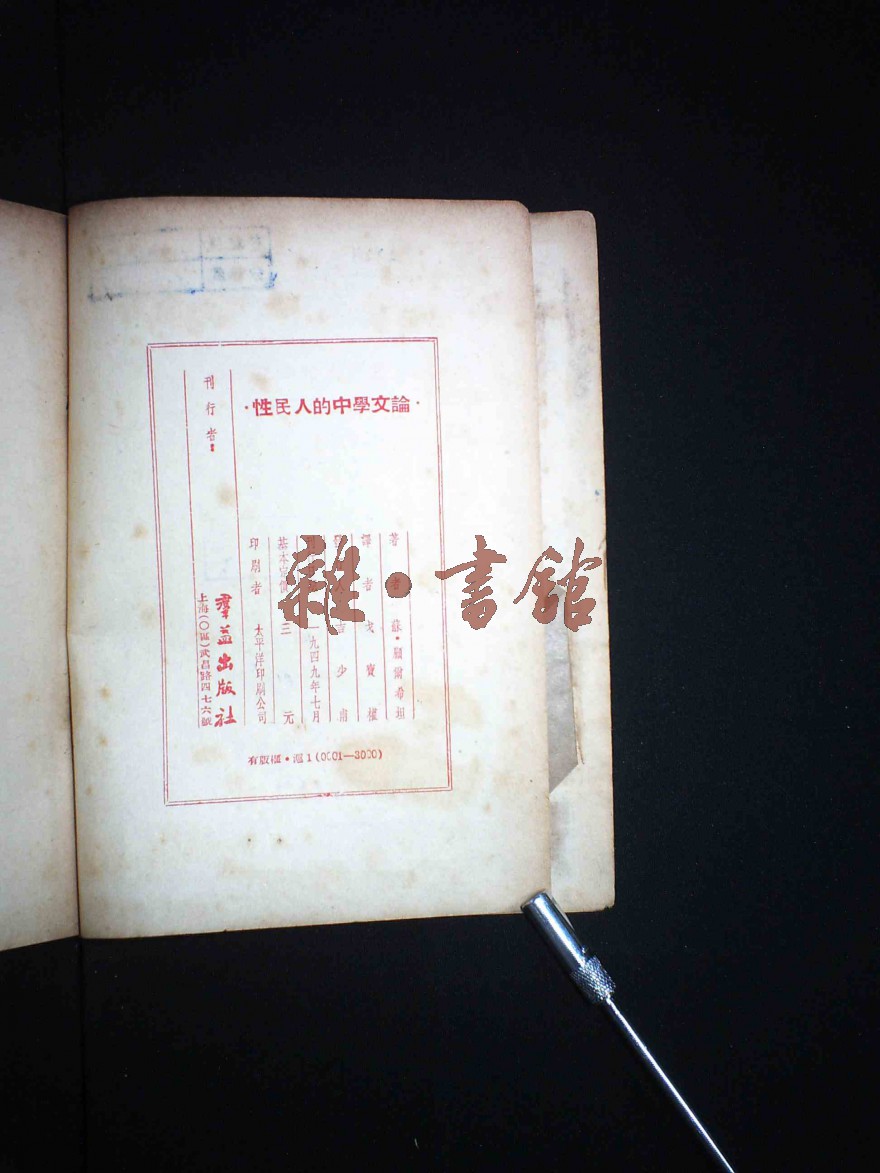 ·論文學中的人民性·
著者 蘇·顧爾希坦
譯者 戈寶權
人 吉少甫
一九四九年七月
基本定價 三元
印刷者 太平洋印刷公司
刊行者：
羣益出版社
上海(〇區)武昌路四七六號
有版權·滬1(0001—3000)
雜·書館